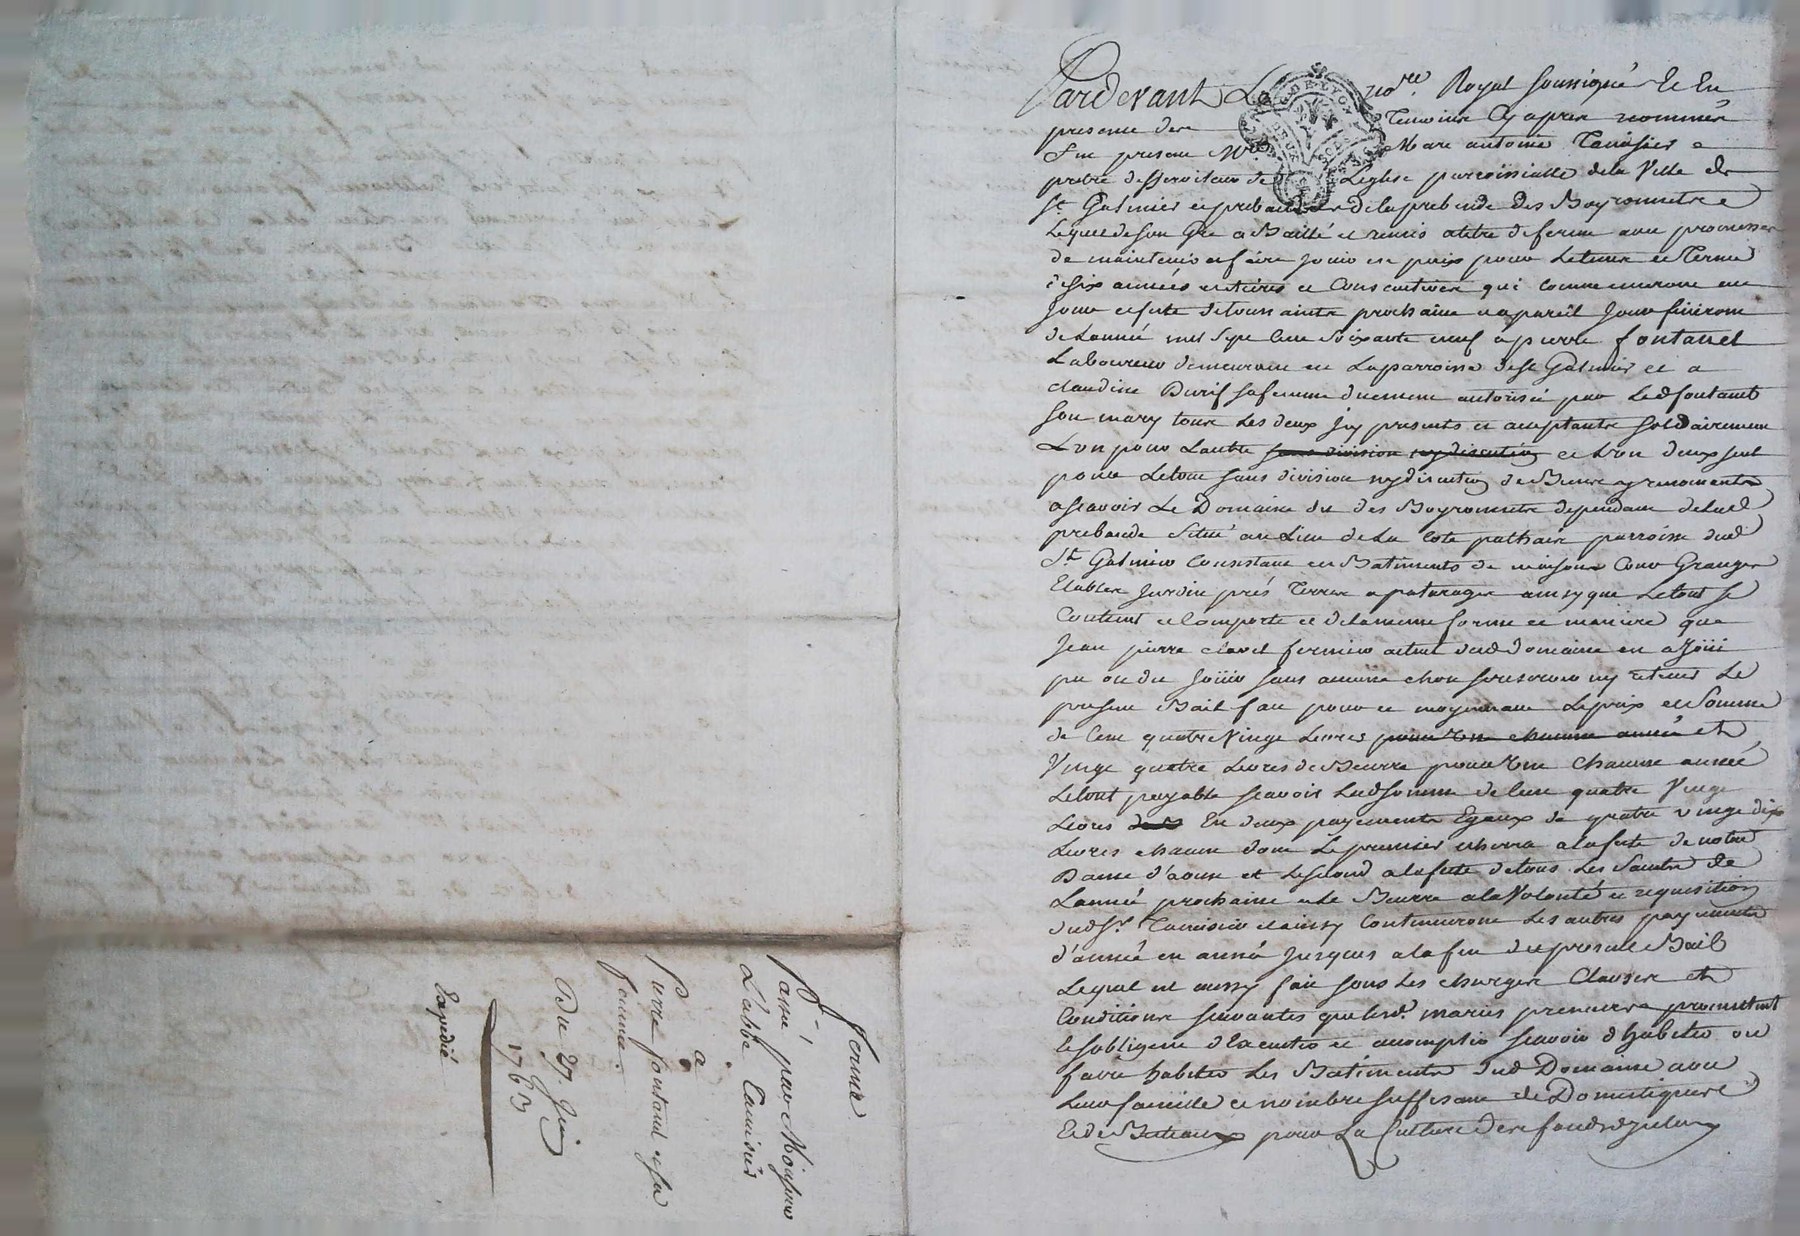 Pardevant Le no.re Royal soussigné Et En
presence des Temoins Cy apres nommés
Fut present M.re Marc antoine Tamisier
pretre desserviteur de Leglise parroissialle dela Ville de
S.t Galmier et prebandier dela prebende des Boyronnetre
Lequel de son Gré a Baillé et remis atitre deferme avec promesse
de maintenir et faire Jouir en paix pour Letems et Terme
de six années entieres et Consecutives qui commenceront au
Jour et feste detoussaints prochaine et apareil Jour finiront
de Lannée mil sept Cent soixante neuf a pierre fontanel
Laboureur demeurant en Laparroisse de S.t Galmier et a
claudine Durif sa femme duement autorisée par Led fontanel
son mary tous Les deux Icy presents et acceptants solidairement
L'un pour Lautre sans division ny discution et L'un deux seul
pour Letout sans division ny discution de Biens y renonçants
ascavoir Le Domaine dit des Boyronnetre dependant de Lad
prebande situé au Lieu de La Cote parroisse dud
S.t Galmier Consistant en Batiments de maison Cour Granges
Etables Jardin prés Terres et paturages ainsy que Letout se
Contient et Comporte et dela meme forme et maniere que
Jean pierre clavel fermier actuel dud domaine en a Joüi
pu ou du Joüir sans aucune chose se reserver ny retenir Le
present Bail fait pour et moyennant Leprix et Somme
de Cent quatre Vingt Livres pour chacune année et
Vingt quatre Livres de Beurre pour chacune année
Letout payable scavoir Lad somme de Cent quatre Vingt
Livres En deux payements Egaux de quatre vingt dix
Livres chacun dont Le premier echerra a lafeste de notre
Dame d'aoust et Lesecond a lafeste detous Les Saints de
Lannée prochaine et Le Beurre ala Volonté et requisition
dud S.r Tamisier et ainsy Continueront Les autres payements
d'année en année Jusques a la fin du present Bail
Lequel est aussy fait sous Les charges Clauses et
Conditions suivantes que lesd. mariés preneurs promettent
et sobligent d'Executer et accomplir scavoir d'habiter ou
faire habiter Les Batiments dud Domaine avec
Leur famille et nombre suffisant de Domestiques
Et de Bestiaux pour La Culture des fonds
Ferme
Passé par Monsieur
L'abbé Tamisier
a
Pierre fontanel et sa
femme.
Du 27. Juin
1763
Expédié